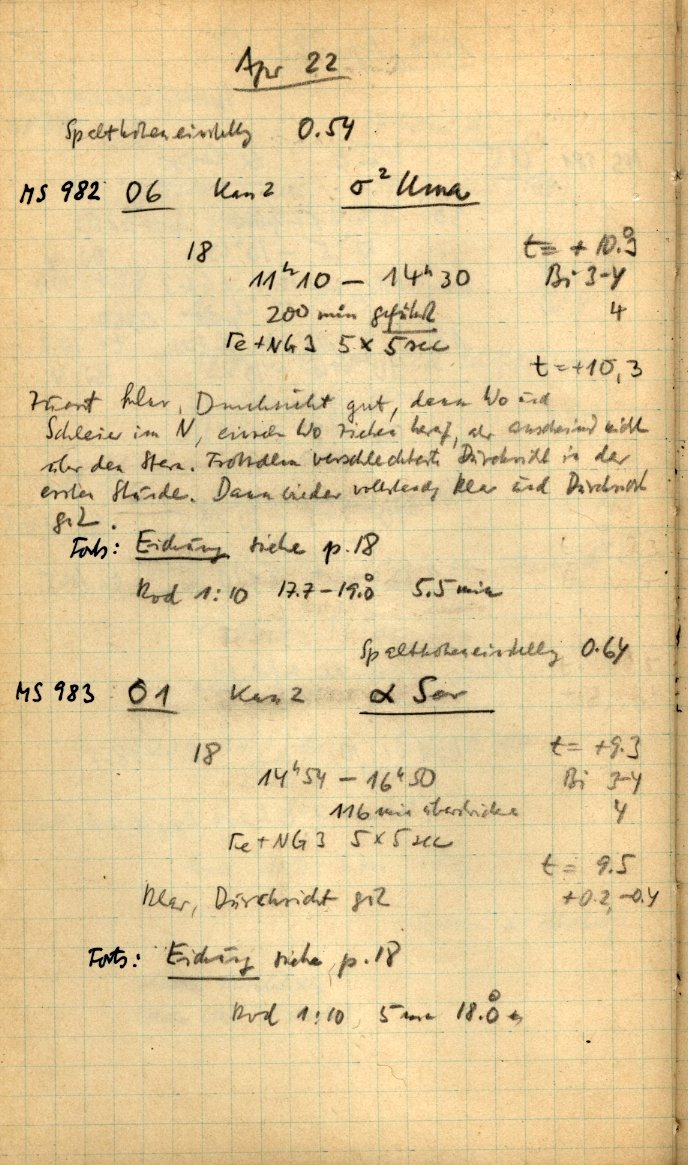 Apr 22
Spalthöheneinstellg 0.54
MS 982 06 Kam 2 σ² Uma
18 t = + 10.°3
11ʰ10 – 14ʰ30 Bi 3-4
200 min geführt 4
Fe + NG 3 5 × 5 sec
t = +10,3
Zuerst klar, Durchsicht gut, dann Wo und
Schleier im N, einzeln Wo ziehen herauf, aber anscheinend nicht
über den Stern. Trotzdem verschlechterte Durchsicht in der
ersten Stunde. Dann wieder vollständig klar und Durchsicht
gut.
Forts: Eichung siehe p. 18
Rod 1:10 17.7 – 19.°0 5.5 min
Spalthöheneinstellg 0.64
MS 983 01 Kam 2 α Ser
18 t = +9.3
14ʰ54 – 16ʰ50 Bi 3-4
116 min 4
Fe + NG 3 5 × 5 sec
t = 9.5
Klar, Durchsicht gut +0.2, -0.4
Forts: Eichung siehe p. 18
Rod 1:10, 5 min 18.°0